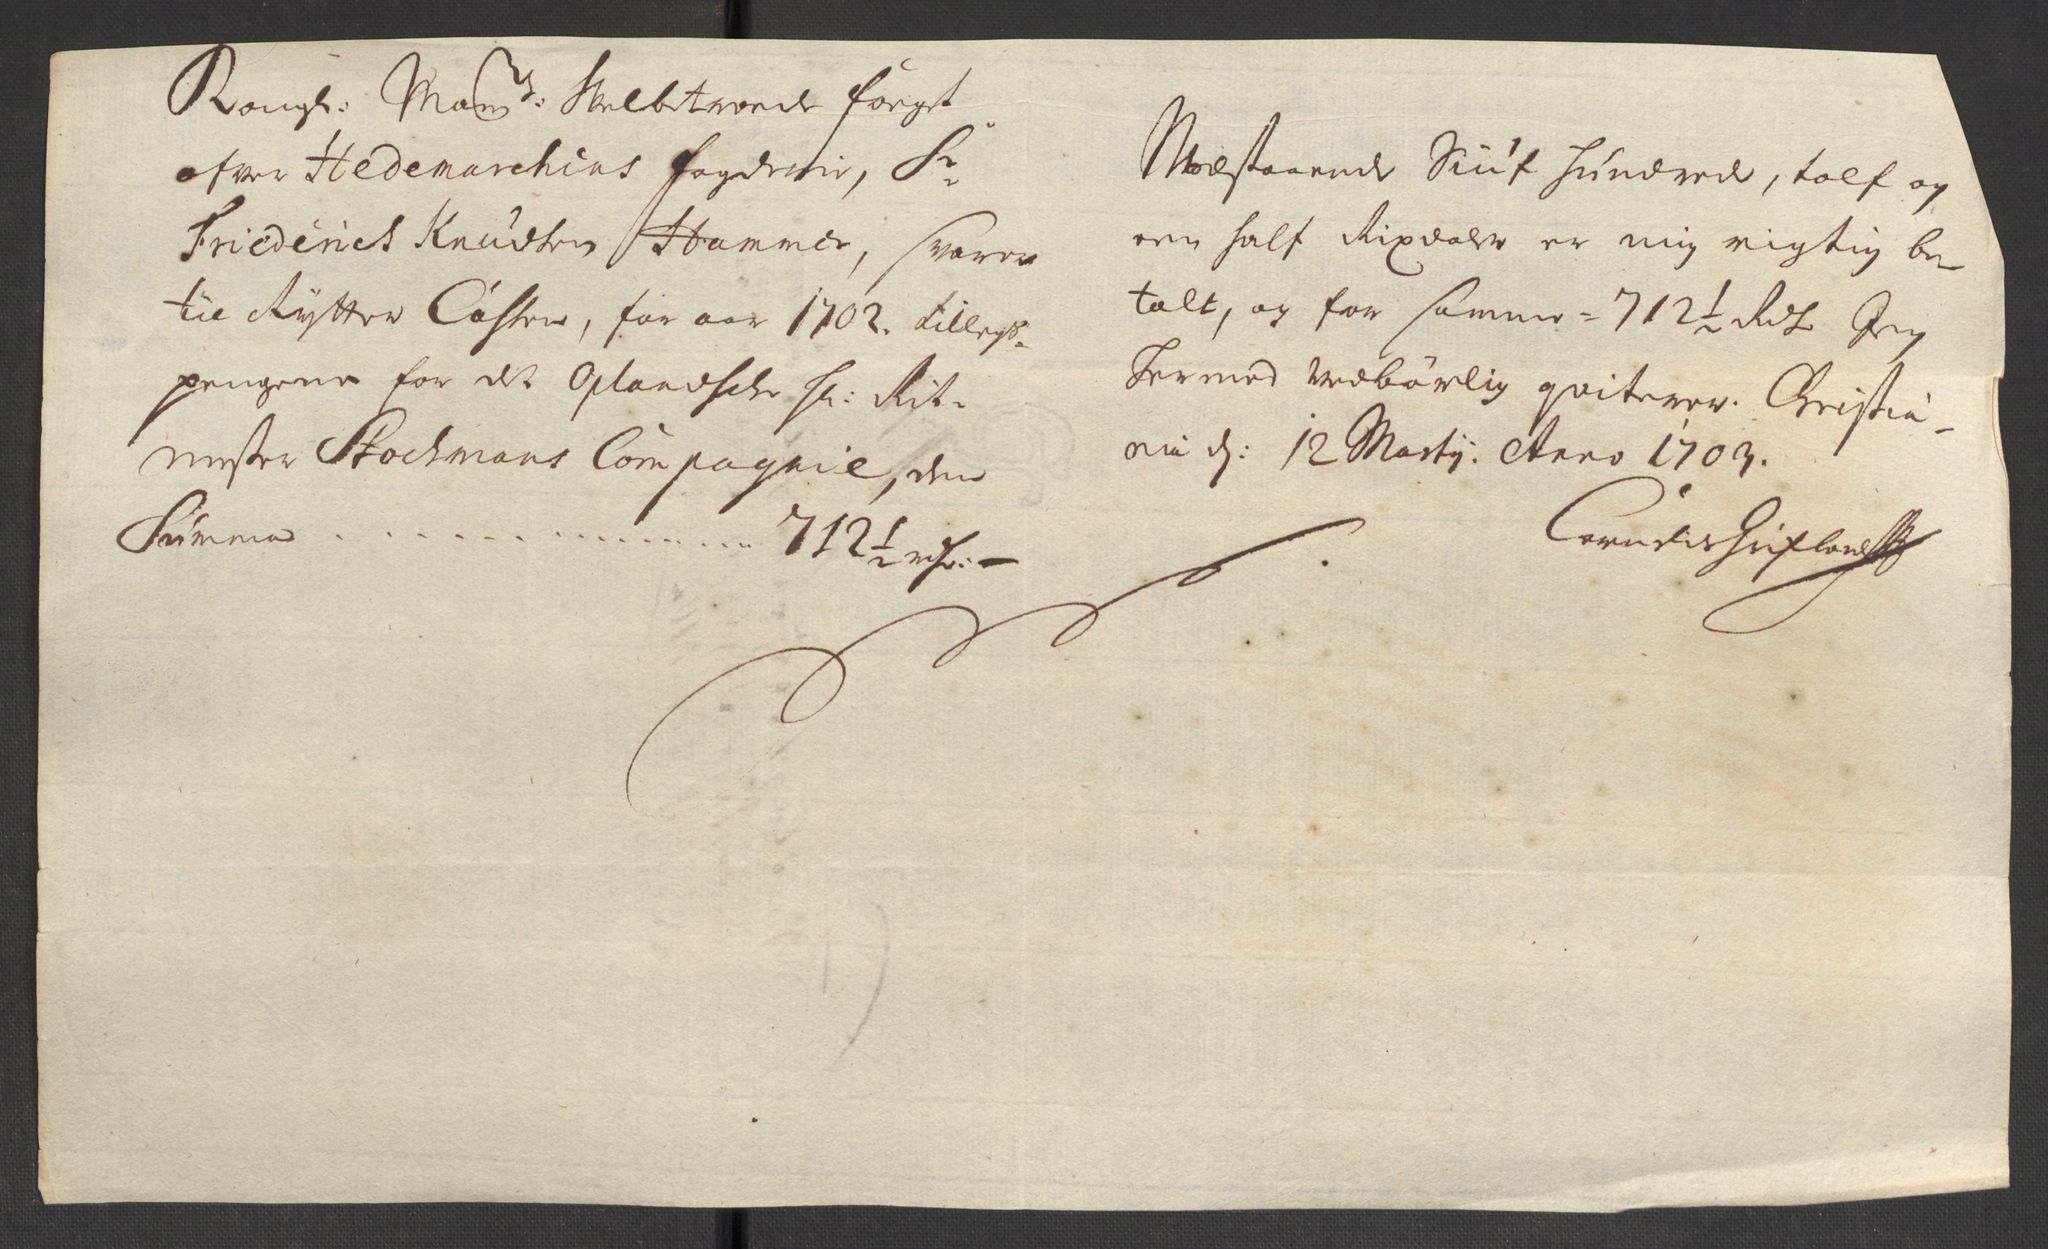 Kongl: May:ts: Velbetroede foeget
ofver Hedemarchens fogderie, Sr
Friederich Knudsen Hammer, svarer
til Rytter Cassen, for aar 1702. tillegs-
pengene for det Oplandsche Hr: Rit-
mester Stockmans Compagnie, den
Summa . . . . . . . . . . . . 712½ rdr: —
Modstaaende Siuf hundrede, tolf og
een half Rixdaler er mig rigtig be-
talt, og for samme = 712½ Rdr Jeg
hermed vedbörlig qviterer. Christia-
nia d: 12 Marty. Anno 1703.